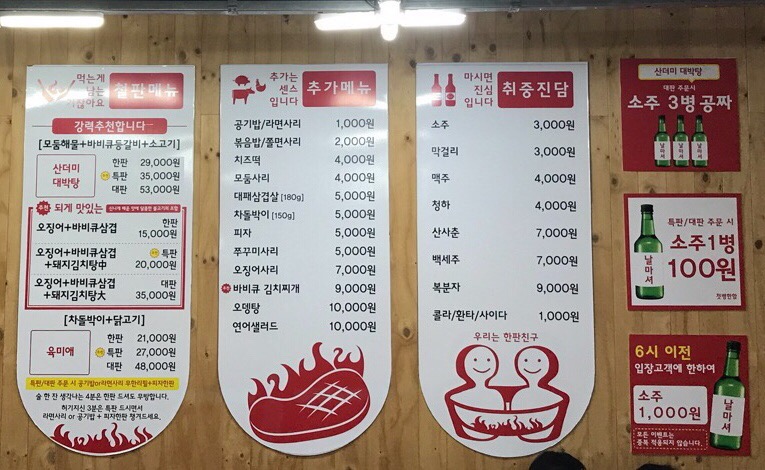 먹는게
남는
철판메뉴
강력추천합니다
[모둠해물+바비큐등갈비+소고기]
산더미
대박탕
한판 29,000원
특판 35,000원
대판 53,000원
추천 되게 맛있는
오징어+바비큐삼겹
한판
15,000원
오징어+바비큐삼겹
+돼지김치탕中
특판
20,000원
오징어+바비큐삼겹
+돼지김치탕大
대판
35,000원
[차돌박이+닭고기]
육미애
한판 21,000원
특판 27,000원
대판 48,000원
특판/대판 주문 시 공기밥or라면사리 무한리필+피자한판
술 한 잔 생각나는 4분은 한판 드셔도 무방합니다.
허기지신 3분은 특판 드시면서
라면사리 or 공기밥 + 피자한판 챙겨드세요.
추가는
센스
입니다
추가메뉴
공기밥/라면사리 1,000원
볶음밥/쫄면사리 2,000원
치즈떡 4,000원
모둠사리 4,000원
대패삼겹살 [180g] 5,000원
차돌박이 [150g] 5,000원
피자 5,000원
쭈꾸미사리 5,000원
오징어사리 7,000원
바비큐 김치찌개 9,000원
오뎅탕 10,000원
연어샐러드 10,000원
마시면
진심
입니다
취중진담
소주 3,000원
막걸리 3,000원
맥주 4,000원
청하 4,000원
산사춘 7,000원
백세주 7,000원
복분자 9,000원
콜라/환타/사이다 1,000원
우리는 한판친구
산더미 대박탕
대판 주문시
소주 3병 공짜
날마셔
날마셔
날마셔
특판/대판 주문 시
소주1병
100원
첫병한함
날마셔
6시 이전
입장고객에 한하여
소주
1,000원
모든 이벤트는
중복 적용되지 않습니다.
날마셔